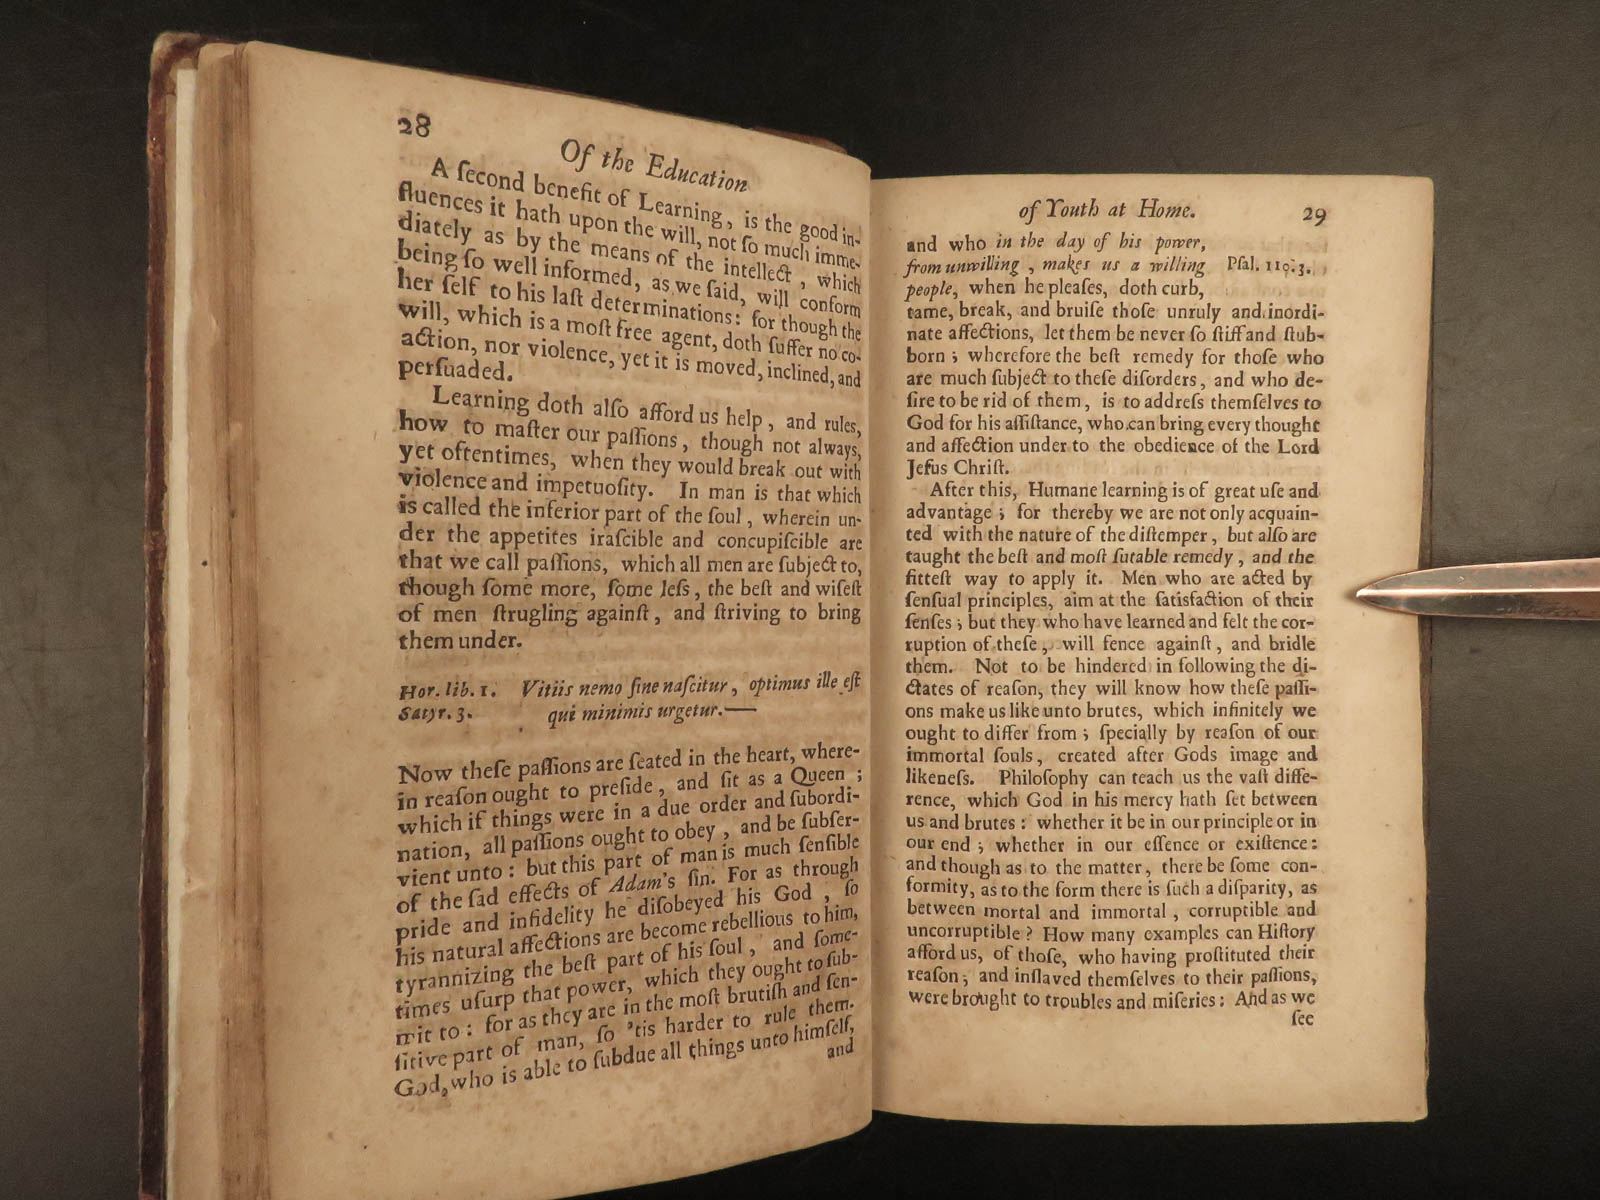 28
Of the Education
A ſecond benefit of Learning, is the good in-
fluences it hath upon the will, not ſo much imme-
diately as by the means of the intellect, which
being ſo well informed, as we ſaid, will conform
her ſelf to his laſt determinations: for though the
will, which is a moſt free agent, doth ſuffer no co-
action, nor violence, yet it is moved, inclined, and
perſuaded.
Learning doth alſo afford us help, and rules,
how to maſter our paſſions, though not always,
yet oftentimes, when they would break out with
violence and impetuoſity. In man is that which
is called the inferior part of the ſoul, wherein un-
der the appetites iraſcible and concupiſcible are
that we call paſſions, which all men are ſubject to,
though ſome more, ſome leſs, the beſt and wiſeſt
of men ſtrugling againſt, and ſtriving to bring
them under.
Hor. lib. 1. Vitiis nemo ſine naſcitur, optimus ille eſt
Satyr. 3. qui minimis urgetur.—
Now theſe paſſions are ſeated in the heart, where-
in reaſon ought to preſide, and ſit as a Queen;
which if things were in a due order and ſubordi-
nation, all paſſions ought to obey, and be ſubſer-
vient unto: but this part of man is much ſenſible
of the ſad effects of Adam's ſin. For as through
pride and infidelity he diſobeyed his God, ſo
his natural affections are become rebellious to him,
tyrannizing the beſt part of his ſoul, and ſome-
times uſurp that power, which they ought to ſub-
mit to: for as they are in the moſt brutiſh and ſen-
ſitive part of man, ſo 'tis harder to rule them.
God, who is able to ſubdue all things unto himſelf,
and
of Youth at Home. 29
and who in the day of his power,
from unwilling, makes us a willing Pſal. 110.3.
people, when he pleaſes, doth curb,
tame, break, and bruiſe thoſe unruly and inordi-
nate affections, let them be never ſo ſtiff and ſtub-
born; wherefore the beſt remedy for thoſe who
are much ſubject to theſe diſorders, and who de-
ſire to be rid of them, is to addreſs themſelves to
God for his aſſiſtance, who can bring every thought
and affection under to the obedience of the Lord
Jeſus Chriſt.
After this, Humane learning is of great uſe and
advantage; for thereby we are not only acquain-
ted with the nature of the diſtemper, but alſo are
taught the beſt and moſt ſutable remedy, and the
fitteſt way to apply it. Men who are acted by
ſenſual principles, aim at the ſatisfaction of their
ſenſes; but they who have learned and felt the cor-
ruption of theſe, will fence againſt, and bridle
them. Not to be hindered in following the di-
ctates of reaſon, they will know how theſe paſſi-
ons make us like unto brutes, which infinitely we
ought to differ from; ſpecially by reaſon of our
immortal ſouls, created after Gods image and
likeneſs. Philoſophy can teach us the vaſt diffe-
rence, which God in his mercy hath ſet between
us and brutes: whether it be in our principle or in
our end; whether in our eſſence or exiſtence:
and though as to the matter, there be ſome con-
formity, as to the form there is ſuch a diſparity, as
between mortal and immortal, corruptible and
uncorruptible? How many examples can Hiſtory
afford us, of thoſe, who having proſtituted their
reaſon; and inſlaved themſelves to their paſſions,
were brought to troubles and miſeries: And as we
ſee